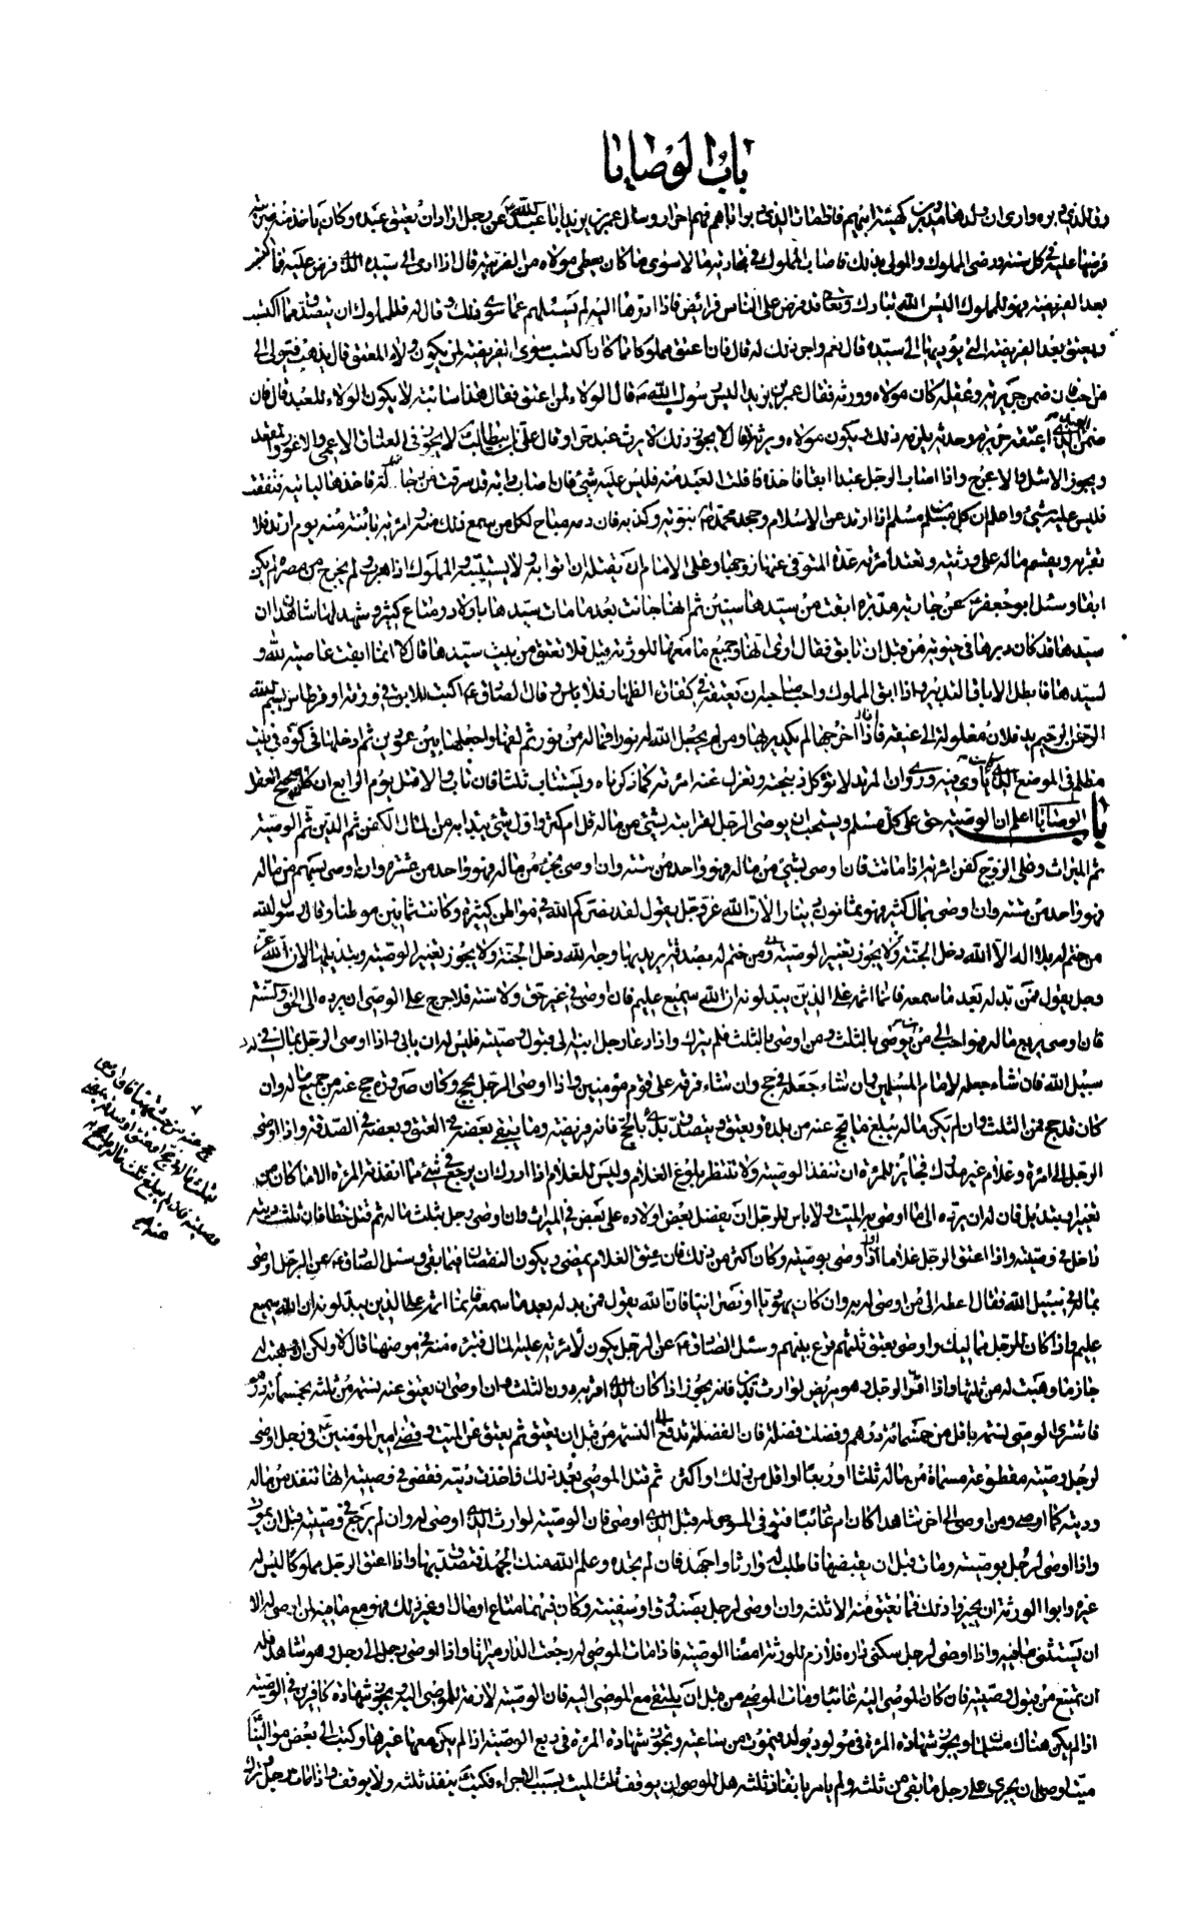 باب الوصايا
فرضها عليه في كل سنة ورضي المملوك والمولى بذلك فاصاب المملوك في تجارته مالا سوى ما كان يعطي مولاه من الفريضة قال اذا ادى الى سيده ما كان فرض عليه فما اكتسب
بعد الفريضة فهو للمملوك اليس الله تبارك وتعالى قد فرض على الناس فرايض فاذا ادوها اليه لم يسئلهم عما سوى ذلك وقال له فللمملوك ان يتصدق مما اكتسب
ويعتق بعد الفريضة التي يؤديها الى سيده قال نعم واجر ذلك له قال فان اعتق مملوكا مما كان اكتسب سوى الفريضة لمن يكون ولاء المعتق قال يذهب فيتولى الى
من احب فان ضمن جريرته وعقله كان مولاه وورثه فقال عمر بن يزيد اليس رسول الله ص قال الولاء لمن اعتق فقال هذا سائبة لا يكون الولاء للعبد قال فان
ويجوز الاشل والاعرج واذا اصاب الرجل عبدا ابقا فاخذه فافلت العبد منه فليس عليه شيء فان اصاب دابة قد سرقت من جار له فاخذها لياتيه فنفقت
فليس عليه شيء واعلم ان كل مسلم من مسلم اذا ارتد عن الاسلام وجحد محمدا نبوته وكذبه فان دمه مباح لكل من سمع ذلك منه وامراته بائنة منه يوم ارتد فلا
تقربه ويقسم ماله على ورثته وتعتد امرته عدة المتوفى عنها زوجها وعلى الامام ان يقتله ان اتوا به ولا يستتيبه والمملوك اذا هرب ولم يخرج من مصره لم يكن
ابقا وسئل ابو جعفر عن جارية مدبرة ابقت من سيدها سنين ثم انها جائت بعد ما مات سيدها باولاد ومتاع كثير وشهد لها شاهدان ان
سيدها قد كان دبرها في حيوته من قبل ان تابق فقال ارى انها وجميع ما معها للورثة قيل فلا تعتق من ثلث سيدها قال لا انما ابقت عاصية لله و
لسيدها فابطل الاباق التدبير واذا ابق المملوك واحب صاحبه ان يعتقه في كفارة الظهار فلا باس وقال الصادق اكتب للابق في ورقة او قرطاس بسم الله
الرحمن الرحيم يد فلان مغلولة الى عنقه اذا اخرجها لم يكد يريها ومن لم يجعل الله له نورا فما له من نور ثم لفها واجعلها بين عودين ثم ادخلها في كوة في بيت
باب الوصايا اعلم ان الوصية حق على كل مسلم ويستحب ان يوصي الرجل لقرابته بشيء من ماله قل ام كثر واول شيء يبتدا به من المال الكفن ثم الدين ثم الوصية
ثم الميراث وعلى الزوج كفن امرته اذا ماتت فان اوصى بشيء من ماله فهو واحد من ستة وان اوصى بجزء من ماله فهو واحد من عشرة وان اوصى بسهم من ماله
فهو واحد من ستة وان اوصى بمال كثير فهو ثمانون دينارا لان الله عز وجل يقول لقد نصركم الله في مواطن كثيرة وكانت ثمانين موطنا وقال رسول الله
من ختم له بلا اله الا الله دخل الجنة ولا يجوز تغيير الوصية ومن ختم له بصدقة يريد بها وجه الله دخل الجنة ولا يجوز تغيير الوصية وتبديلها لان الله عز
وجل يقول فمن بدله بعد ما سمعه فانما اثمه على الذين يبدلونه ان الله سميع عليم فان اوصى في غير حق ولا سنة فلا حرج على الوصي ان يرده الى الحق والسنة
فان اوصى بربع ماله فهو احب الي من ان يوصي بالثلث ومن اوصى بالثلث فلم يترك واذا دعا رجل ابنه الى قبول وصيته فليس له ان يابى واذا اوصى الرجل بمال في
سبيل الله فان شاء جعله لامام المسلمين وان شاء جعله في حج وان شاء فرقه على قوم مؤمنين واذا اوصى الرجل بحج وكان صرورة حج عنه من جميع ماله وان
كان قد حج فمن الثلث وان لم يكن ماله يبلغ ما يحج عنه من بلده وبعتق وبصدقة بدا بالحج فانه فريضة وما يبقى بعضه في العتق وبعضه في الصدقة واذا اوصى
الرجل الى امرة وغلام غير مدرك فجائز للمرة ان تنفذ الوصية ولا تنتظر بلوغ الغلام وليس للغلام اذا ادرك ان يرجع في شيء مما انفذته المرة الا ما كان من
تغيير او تبديل فان له ان يرده الى ما اوصى به الميت ولا باس للرجل ان يفضل بعض اولاده على بعض في الميراث وان اوصى رجل بثلث ماله ثم قتل خطا فان ثلث ديته
داخل في وصيته واذا اعتق الرجل غلامه او اوصى بوصية وكان اكثر من ذلك فان عتق الغلام يمضي ويكون النقصان فيما بقي وسئل الصادق عن الرجل اوصى
بماله في سبيل الله فقال اعطه الى من اوصى له به وان كان يهوديا او نصرانيا فان الله يقول فمن بدله بعد ما سمعه فانما اثمه على الذين يبدلونه ان الله سميع
عليم واذا كان للرجل مماليك واوصى بعتق ثلثهم اقرع بينهم وسئل الصادق عن الرجل يكون لامرته عليه المال فتبرئه منه في مرضها قال لا ولكن ان وهبت له
جاز ما وهبت له من ثلثها واذا اقر الرجل وهو مريض لوارث بدين فانه يجوز اذا كان الذي اقر به دون الثلث وان اوصى ان يعتق عنه نسمة من ثلثه بخمسمائة درهم
فاشترى الوصي نسمة باقل من خمسمائة درهم وفضلت فضلة فان الفضلة تدفع الى النسمة من قبل ان يعتق ثم يعتق عن الميت وقضى امير المؤمنين في رجل اوصى
لرجل وصية مقطوعة مسماة من ماله ثلثا او ربعا او اقل من ذلك او اكثر ثم قتل الموصي بعد ذلك فاخذت ديته فقضى في وصيته انها تنفذ من ماله
وديته كما اوصى ومن اوصى الى اخر شاهدا كان ام غائبا فتوفي الموصى له قبل الذي اوصى فان الوصية لوارث الذي اوصى له وان لم يرجع في وصيته قبل ان يموت
واذا اوصى لرجل بوصية ومات قبل ان يقبضها فاطلب له وارثا واجهد فان لم تجده وعلم الله منك الجهد فتصدق بها واذا اعتق الرجل مملوكا ليس له
غيره وابوا الورثة ان يجيزوا ذلك فما يعتق منه الا ثلثه وان اوصى لرجل بصندوق او سفينة وكان فيها متاع او مال او غير ذلك فهو مع ما فيه لمن اوصى له الا
ان يستثنى بما فيه واذا اوصى لرجل سكنى داره فلازم للورثة امضا الوصية فاذا مات الموصى له رجعت الدار ميراثا واذا اوصى رجل الى رجل وهو شاهد فله
ان يمتنع من قبول وصيته فان كان الموصى اليه غائبا ومات الموصي من قبل ان يلتقي مع الموصى اليه فان الوصية لازمة للموصى اليه ويجوز شهادة كافرين في الوصية
اذا لم يكن هناك مسلمان ويجوز شهادة المرة في مولود يولد فيموت من ساعته ويجوز شهادة المرة في ربع الوصية اذا لم يكن معها غيرها وكتب الى بعض موالينا
ميت اوصى ان يجرى على رجل ما بقي من ثلثه ولم يامر بانفاذ ثلثه هل للوصي ان يوقف ثلث الميت بسبب الاجراء فكتب ينفذ ثلثه ولا يوقف واذا مات رجل وترك